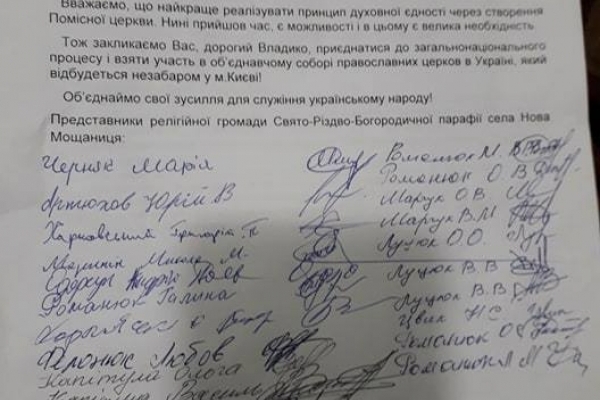 Вважаємо, що найкраще реалізувати принцип духовної єдності через створення
Помісної церкви. Нині прийшов час, є можливості і в цьому є велика необхідність
Тож закликаємо Вас, дорогий Владико, приєднатися до загальнонаціонального
процесу і взяти участь в об'єднавчому соборі православних церков в Україні, який
відбудеться незабаром у м.Києві!
Об'єднаймо свої зусилля для служіння українському народу!
Представники релігійної громади Свято-Різдво-Богородичної парафії села Нова
Мощаниця:
Черняк Марія
Артюхов Юрій В
Микола М.
Романюк Галина
Любов
Капітула Ольга
Капітула
Романюк М.
Романюк О. В
Марчук О. В.
Марчук В. М
Луцюк О. О.
Луцюк В. В
Луцюк В. В
Цвик Н С
Романюк О
Романюк М